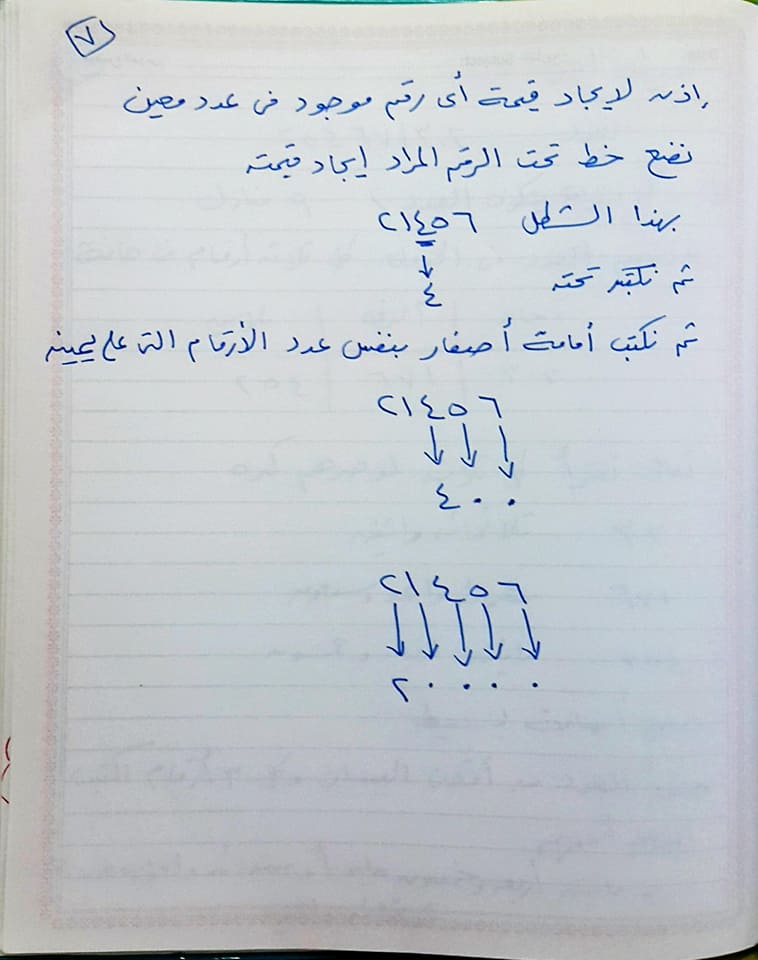 ٧
إذن لايجاد قيمة أى رقم موجود فى عدد معين
نضع خط تحت الرقم المراد إيجاد قيمته
بهذا الشكل ٢١٤٥٦
ثم نكتب تحته ٤
ثم نكتب أمامة أصفار بنفس عدد الأرقام التى على يمينه
٢١٤٥٦
٤٠٠
٢١٤٥٦
٢٠٠٠٠